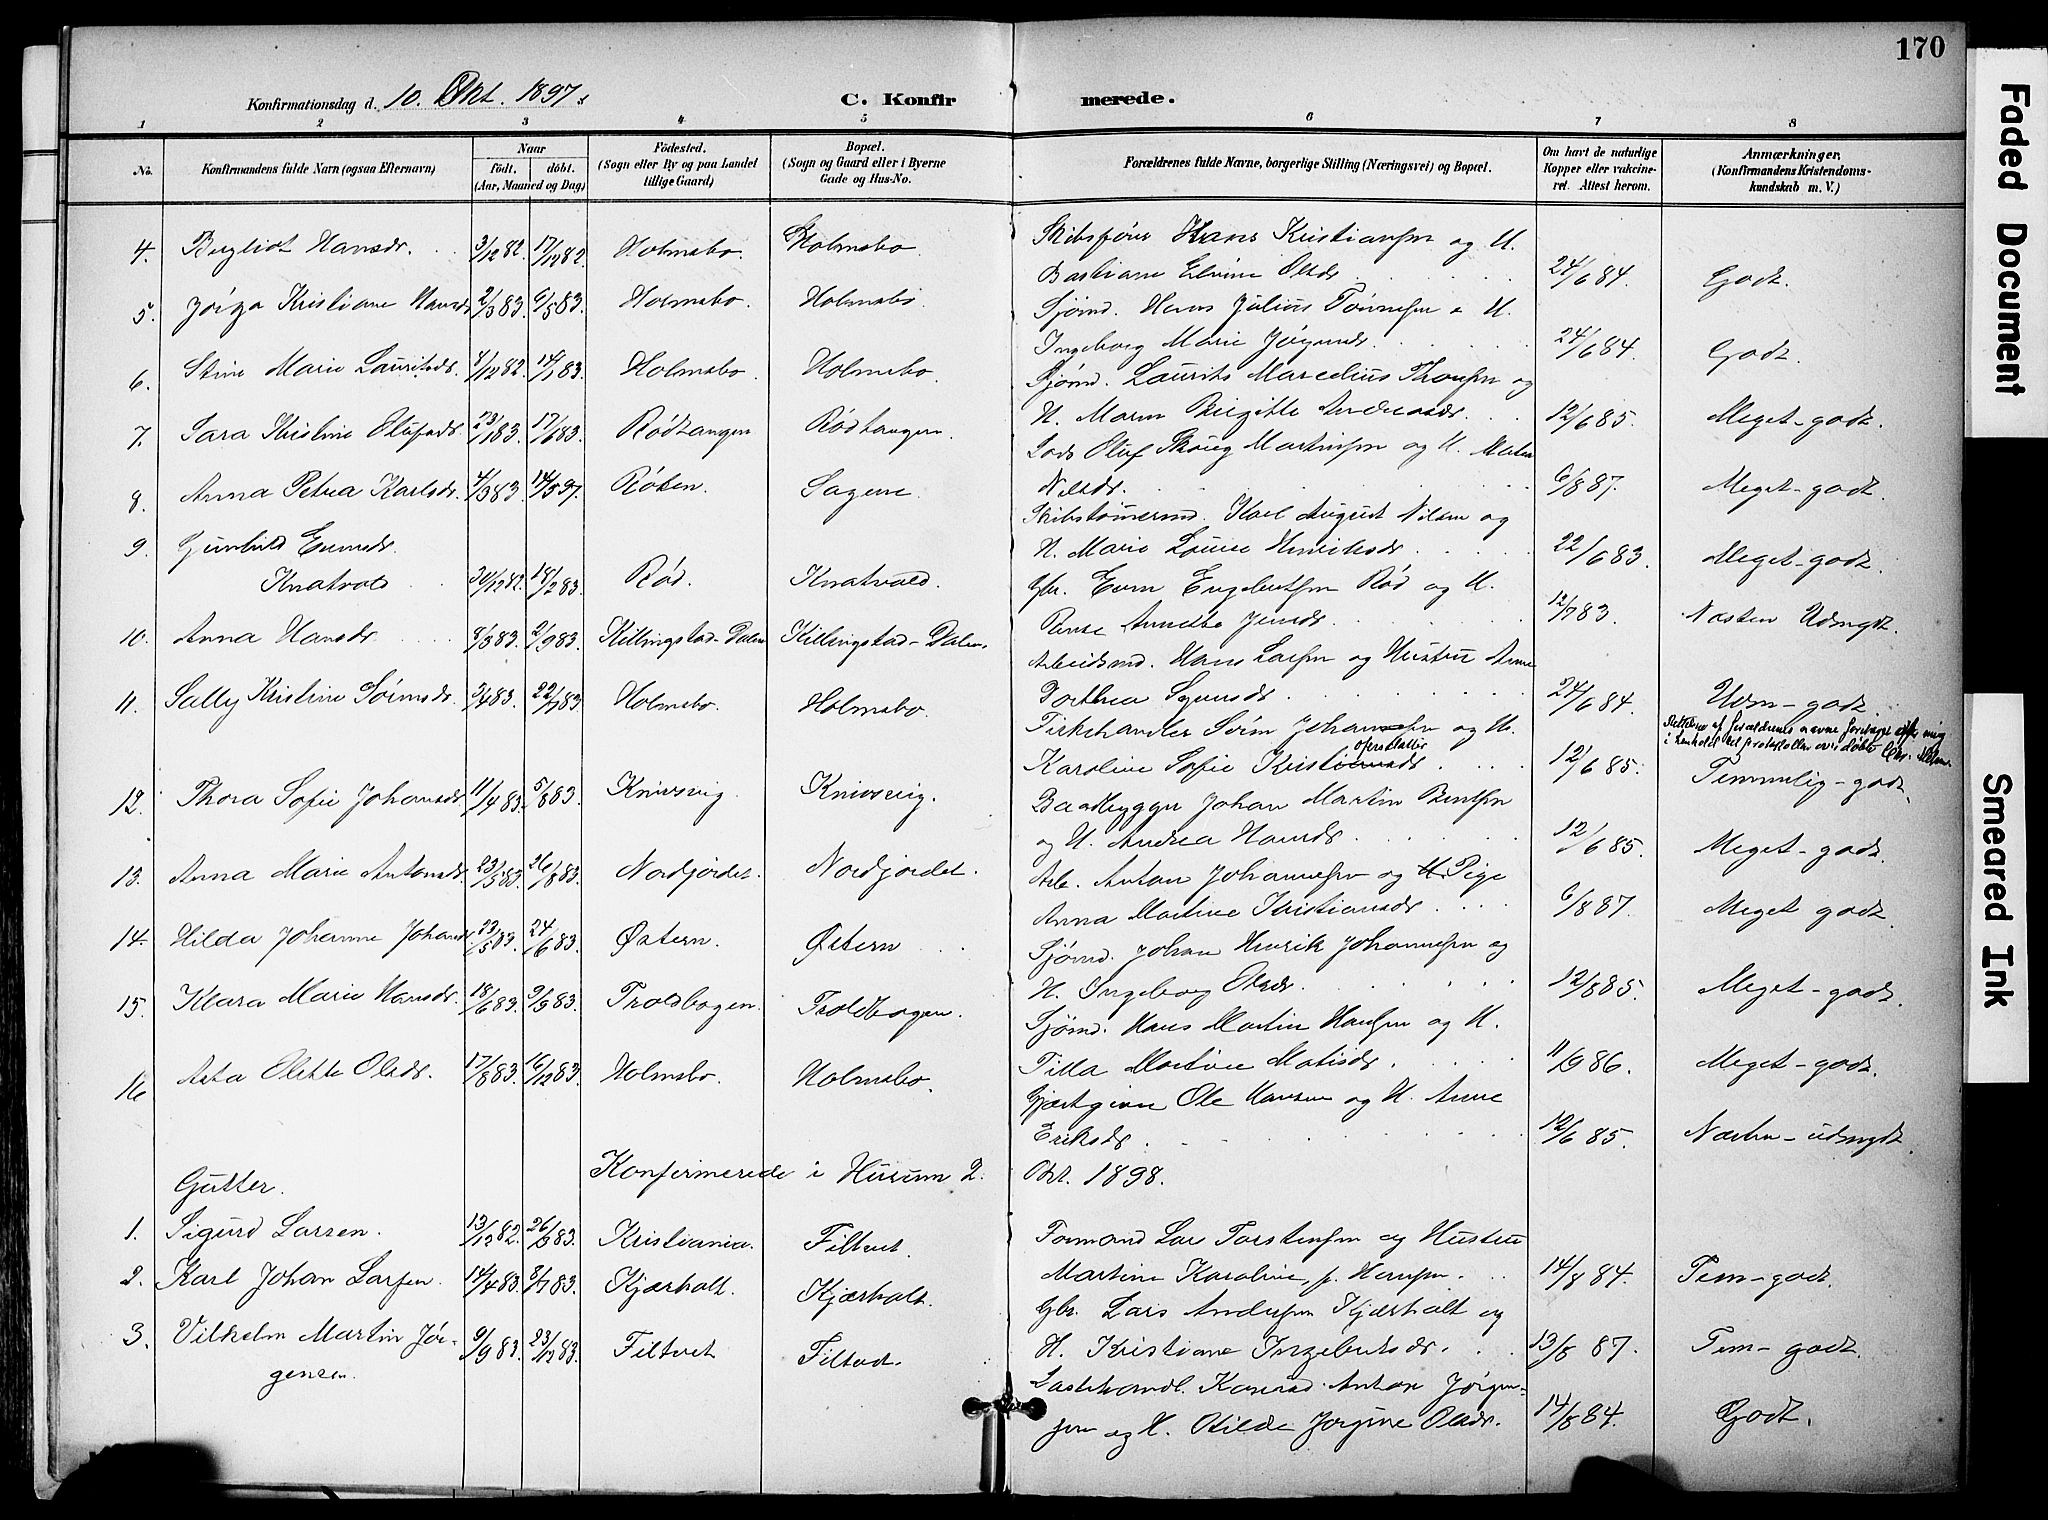 170
Konfirmationsdag d. 10. Okt. 1897.
C. Konfirmerede.
1 2 3 4 5 6 7 8
No. Konfirmandens fulde Navn (ogsaa Efternavn) Naar født, døbt. (Aar, Maaned og Dag) Fødested. (Sogn eller By og paa Landet tillige Gaard) Bopæl. (Sogn og Gaard eller i Byerne Gade og Hus-No. Forældrenes fulde Navne, borgerlige Stilling (Næringsvei) og Bopæl. Om havt de naturlige Kopper eller vakcineret. Attest herom. Anmærkninger, (Konfirmandens Kristendomskundskab m. V.)
4. Hansdr. 3/12 82. 17/12 82. Holmsbo. Holmsbo. Skibsfører Hans Kristiansen og H.
Bastiane Elvine Olsdr. 24/6 84. Godt.
5. Kristiane Hansdr 2/3 83. 6/5 83. Holmsbo. Holmsbo. Sjømd. Hans Julius Tønnesen o H.
Ingeborg Marie 24/6 84. Godt.
6. Stine Marie Lauritsdr. 4/12 82. 14/1 83. Holmsbo. Holmsbo. Sjømd. Laurits Marcelius Thorsen og
H. Maren Birgitte Andreasdr. 12/6 85. Meget-godt.
7. Sara Kristine Olufsdr. 23/1 83. 17/6 83. Rødtangen Rødtangen. Lods Oluf Skoug Martinsen og H. Maren
Nilsdr. 6/8 87. Meget-godt.
8. Anna Petrea Karlsdr. 4/3 83. 14/5 97. Røken. Sagene. Skibstømermd. Karl August Nilsen og
H. Marie Louise Henriksdr. 22/6 83. Meget-godt.
9. Gunhild Evensdr.
Knatvold 30/12 82. 18/2 83. Rød. Knatvold. Gbr. Even Engebretsen Rød og H.
Annette Jensdr. 12/7 83. Næsten Udmgdt.
10. Anna Hansdr. 8/3 83. 2/9 83. Killingstad-Dalen Killingstad-Dalen. Arbeidsmd. Hans Larsen og Hustru Anne
Dorthea 24/6 84. Udm-godt.
11. Sally Kristine Sørensdr. 3/4 83. 22/7 83. Holmsbo. Holmsbo. Fiskehandler Søren Johannesen og H.
Karoline Sofie Kristiansdr. 12/6 85. Temmelig-godt.
12. Thora Sofie Johansdr. 11/4 83. 5/8 83. Knivsvig. Knivsvig. Baadbygger Johan Martin Bentsen
og H. Andrea Hansdr. 12/6 85. Meget-godt.
13. Anna Marie Antonsdr. 23/5 83. 26/8 83. Nordjordet. Nordjordet. Arb. Anton Johannesen og Pige
Anna Martine Kristiansdr. 6/8 87. Meget godt.
14. Hilda Johanne Johansdr 23/5 83. 24/6 83. Østern. Østern Sjømd. Johan Henrik Johannesen og
H. Ingeborg Olsdr. 12/8 85. Meget-godt.
15. Klara Marie Hansdr. 18/6 83. 9/9 83. Troldbogen. Troldbogen. Sjømd. Hans Martin Hansen og H.
Tilla Martine Matisdr. 11/9 86. Meget-godt.
16 Asta Olette Olsdr. 17/8 83. 16/12 83. Holmsbo. Holmsbo. Gjæstgiver Ole Hansen og H. Anne
Eriksdr. 12/6 85. Næsten-udmgdt.
Konfirmerede i Hurum 2. Okt. 1898.
Gutter.
1. Sigurd Larsen. 13/12 82. 26/3 83. Kristiania. Filtvet. Formand Lars Torstensen og Hustru
Martine Karoline, f. Hansen. 14/8 84. Tem-godt.
2. Karl Johan Larsen. 14/4 83. 8/7 83. Kjærholt. Kjærholt. Gbr. Lars Andersen Kjærholt og
H. Kristiane Ingebretsdr. 13/8 87. Tem-godt.
3. Vilhelm Martin Jør-
gensen. 9/9 83. 23/12 83. Filtvet Filtvet. Konrad Anton Jørgen-
sen og H. Otilde Jørgine Olsdr. 14/8 84. Godt.
Faded Document
Smeared Ink